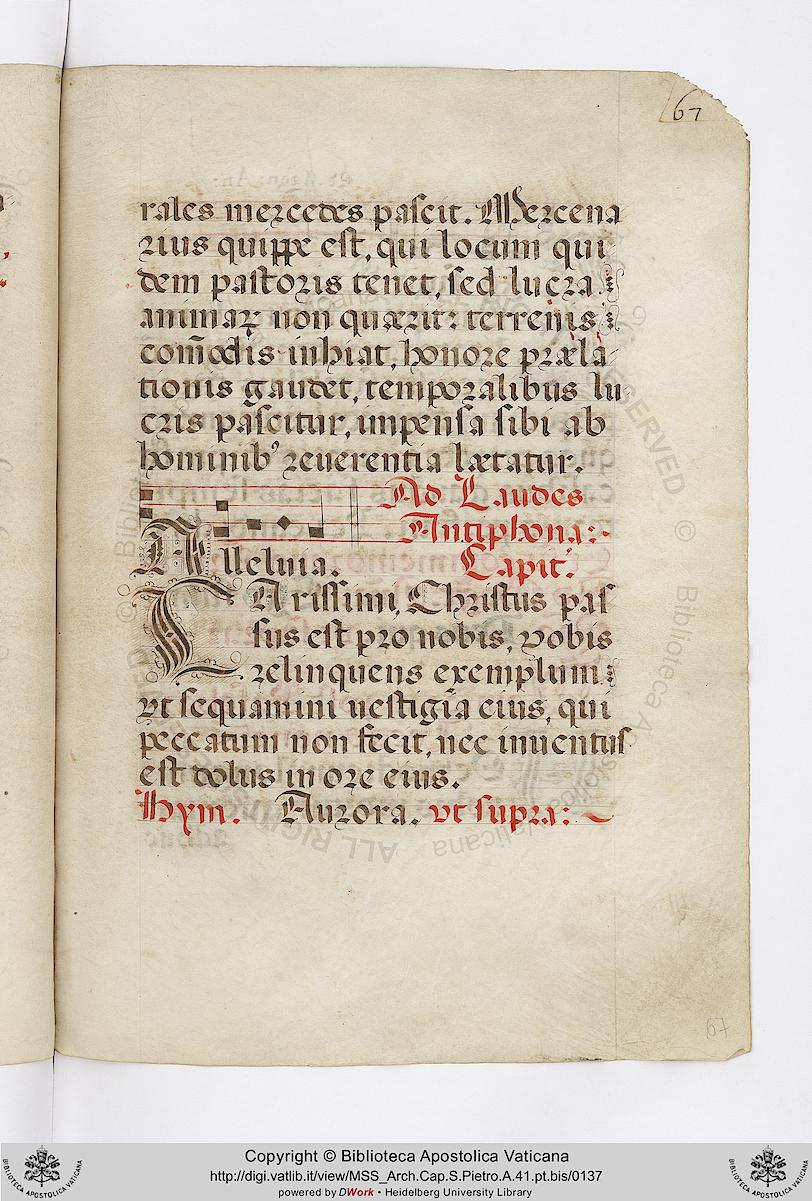 67
rales mercedes pascit. Mercena
rius quippe est, qui locum qui
dem pastoris tenet, sed lucra
animaꝝ non quærit: terrenis
com̃odis inhiat, honore præla-
tionis gaudet, temporalibus lu
cris pascitur, impensa sibi ab
hominib⁹ reverentia lætatur.
Ad Laudes
Antiphona:
Alleluia. Capit.
CArissimi, Christus pas
sus est pro nobis, vobis
relinquens exemplum:
vt sequamini uestigia eius, qui
peccatum non fecit, nec inuentus
est dolus in ore eius.
Hym. Aurora. vt supra:
67
Copyright © Biblioteca Apostolica Vaticana
http://digi.vatlib.it/view/MSS_Arch.Cap.S.Pietro.A.41.pt.bis/0137
powered by DWork • Heidelberg University Library